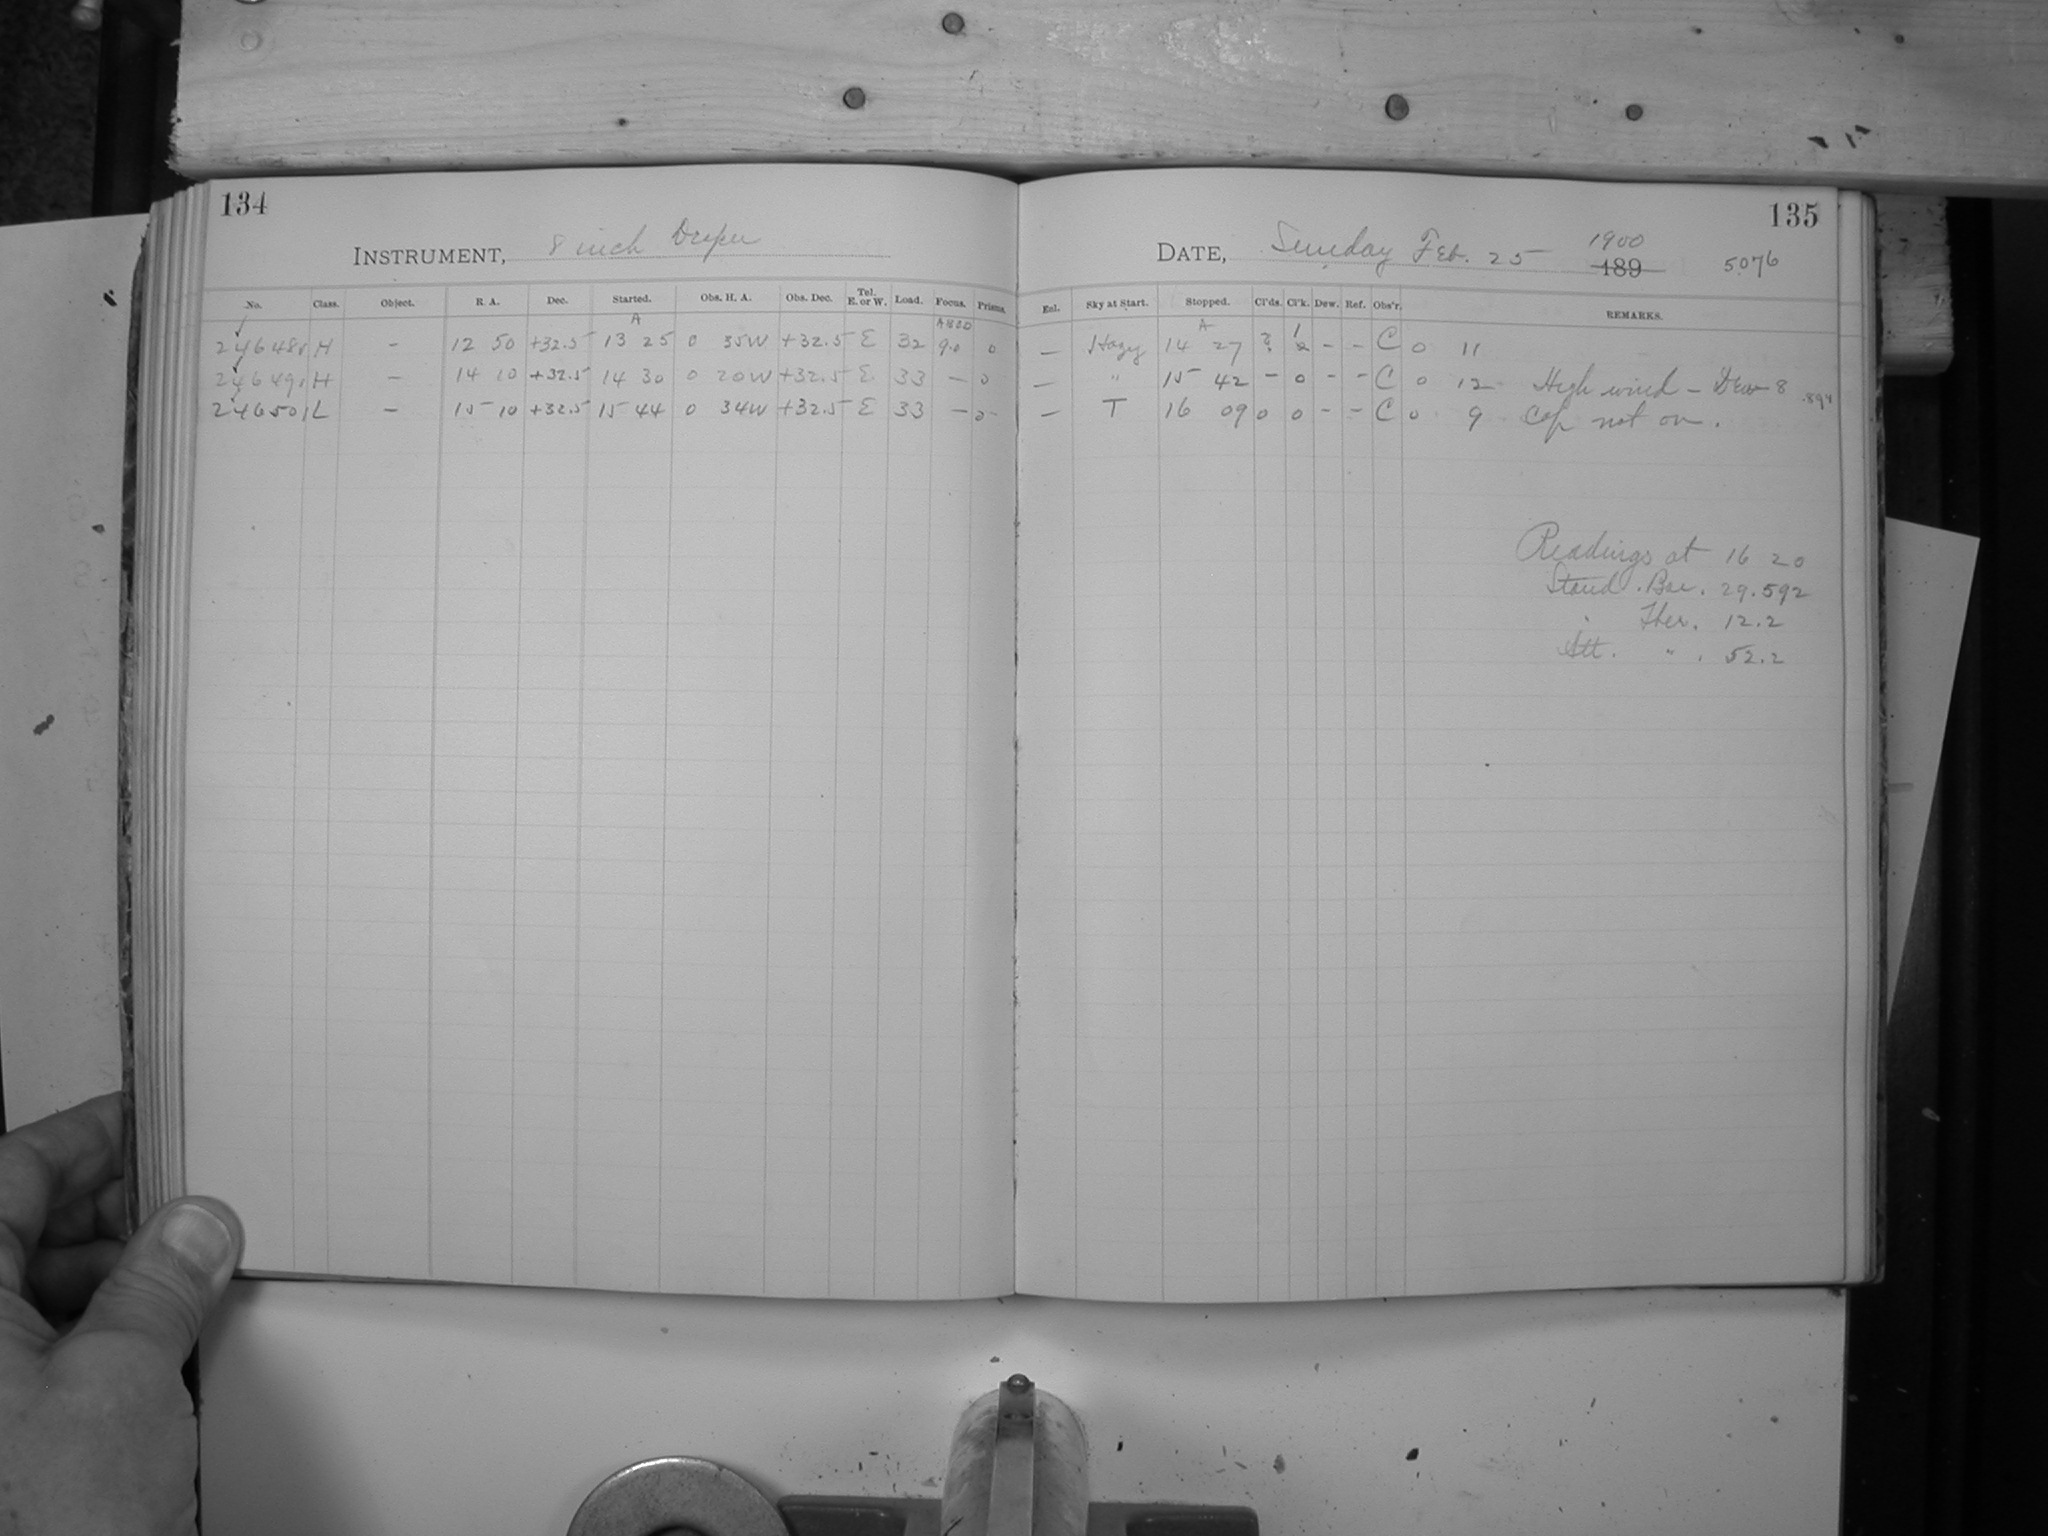 134
INSTRUMENT, 8 inch Draper
No. Class. Object. R. A. Dec. Started. Obs. H. A. Obs. Dec. Tel. E. or W. Load. Focus. Prisms.
A A800
24648 H – 12 50 +32.5 13 25 0 35W +32.5 E 32 9.0 0
24649 H – 14 10 +32.5 14 30 0 20W +32.5 E 33 – 0
24650 L – 15 10 +32.5 15 44 0 34W +32.5 E 33 – 0
135
DATE, Sunday Feb. 25 1900 189 5076
Enl. Sky at Start. Stopped. Cl'ds. Cl'k. Dew. Ref. Obs'r. REMARKS.
A 1
– Hazy 14 27 ? 2 – – C 0 11
– " 15 42 – 0 – – C 0 12 High wind – Dew 8 .894
– T 16 09 0 0 – – C 0 9 Cap not on.
Readings at 16 20
Stand. Bar. 29.592
" Ther. 12.2
Att. " . 52.2